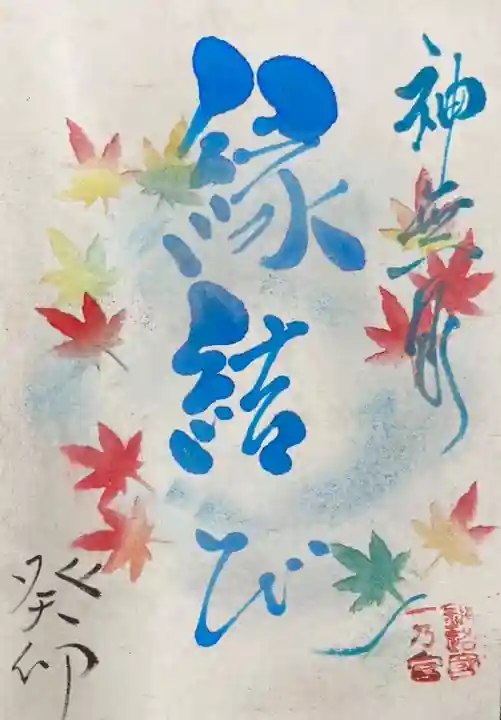 神無月
縁結び
癸卯
一乃宮